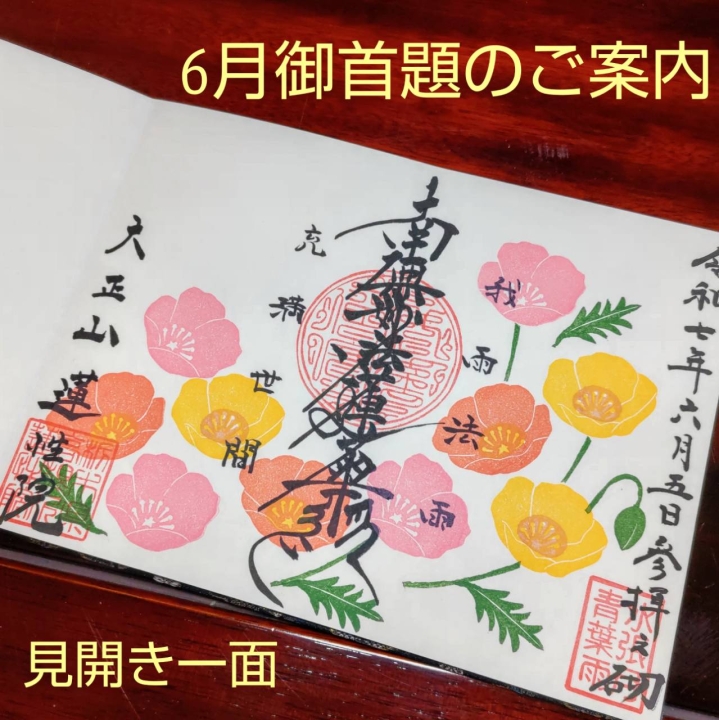 6月御首題のご案内
令和七年六月五日参拝之砌
我雨法雨
南無妙法蓮華経
充満世間
大正山蓮性院
青葉雨
見開き一面